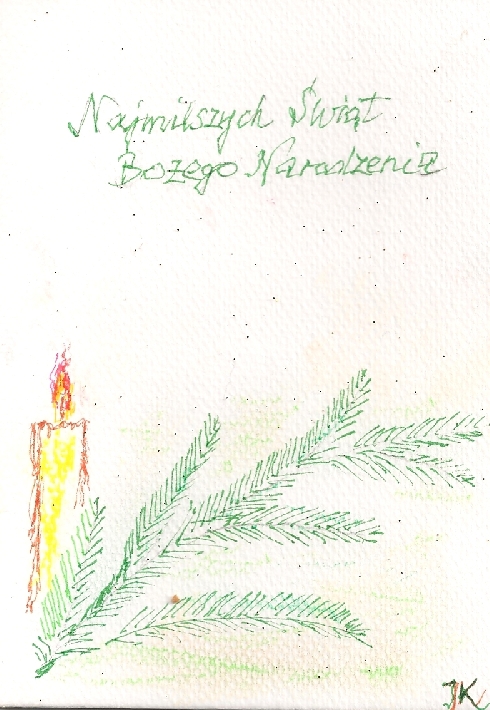 Najmilszych Świąt
Bożego Narodzenia
JK